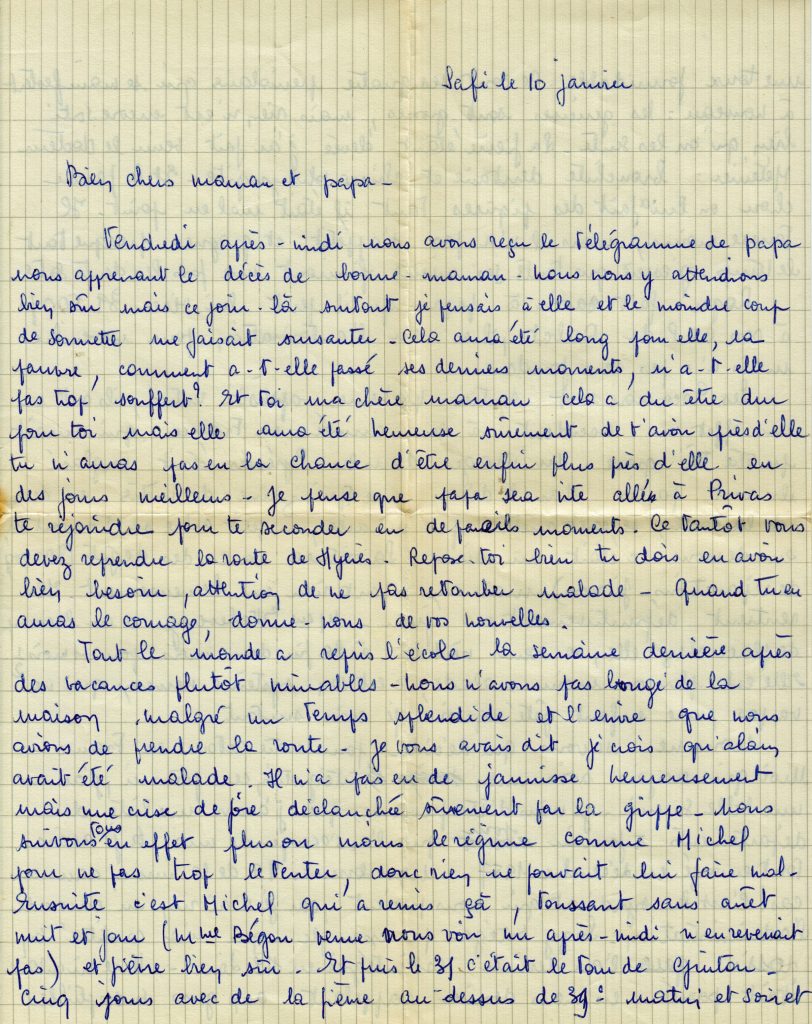 Safi le 10 janvier
Bien chers maman et papa -
Vendredi après-midi nous avons reçu le télégramme de papa
nous apprenant le décès de bonne-maman - nous nous y attendions
bien sûr mais ce jour-là surtout je pensais à elle et le moindre coup
de sonnette me faisait sursauter - Cela aura été long pour elle, la
pauvre, comment a-t-elle passé ses derniers moments, n'a-t-elle
pas trop souffert? Et toi ma chère maman cela a du être dur
pour toi mais elle aura été heureuse sûrement de t'avoir près d'elle
tu n'auras pas eu la chance d'être enfin plus près d'elle en
des jours meilleurs - Je pense que papa sera vite allé à Privas
te rejoindre pour te seconder en de pareils moments. Ce tantôt vous
devez reprendre la route de Hyères. Repose-toi bien tu dois en avoir
bien besoin, attention de ne pas retomber malade - Quand tu en
auras le courage, donne-nous de vos nouvelles.
Tout le monde a repris l'école la semaine dernière après
des vacances plutôt minables - nous n'avons pas bougé de la
maison malgré un temps splendide et l'envie que nous
avions de prendre la route - Je vous avais dit je crois qu'alain
avait été malade. Il n'a pas eu de jaunisse heureusement
mais une crise de foie déclanchée sûrement par la grippe - Nous
suivons tous en effet plus ou moins le régime comme Michel
pour ne pas trop le tenter, donc rien ne pouvait lui faire mal -
Ensuite c'est Michel qui a remis çà, toussant sans arrêt
nuit et jour (Mme Bégou venue nous voir un après-midi n'en revenait
pas) et fièvre bien sûr - Et puis le 31 c'était le tour de
Cinq jours avec de la fièvre au-dessus de 39° matin et soir et